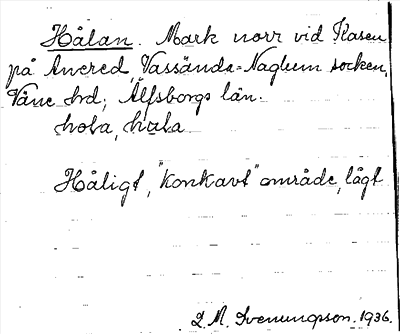 Hålan. Mark norr vid Kasen
på Anered, Vassända-Naglum socken,
Väne hd; Älfsborgs län.
hola, hala
Håligt, "konkavt" område, lågt
M. Svenungson. 1936.